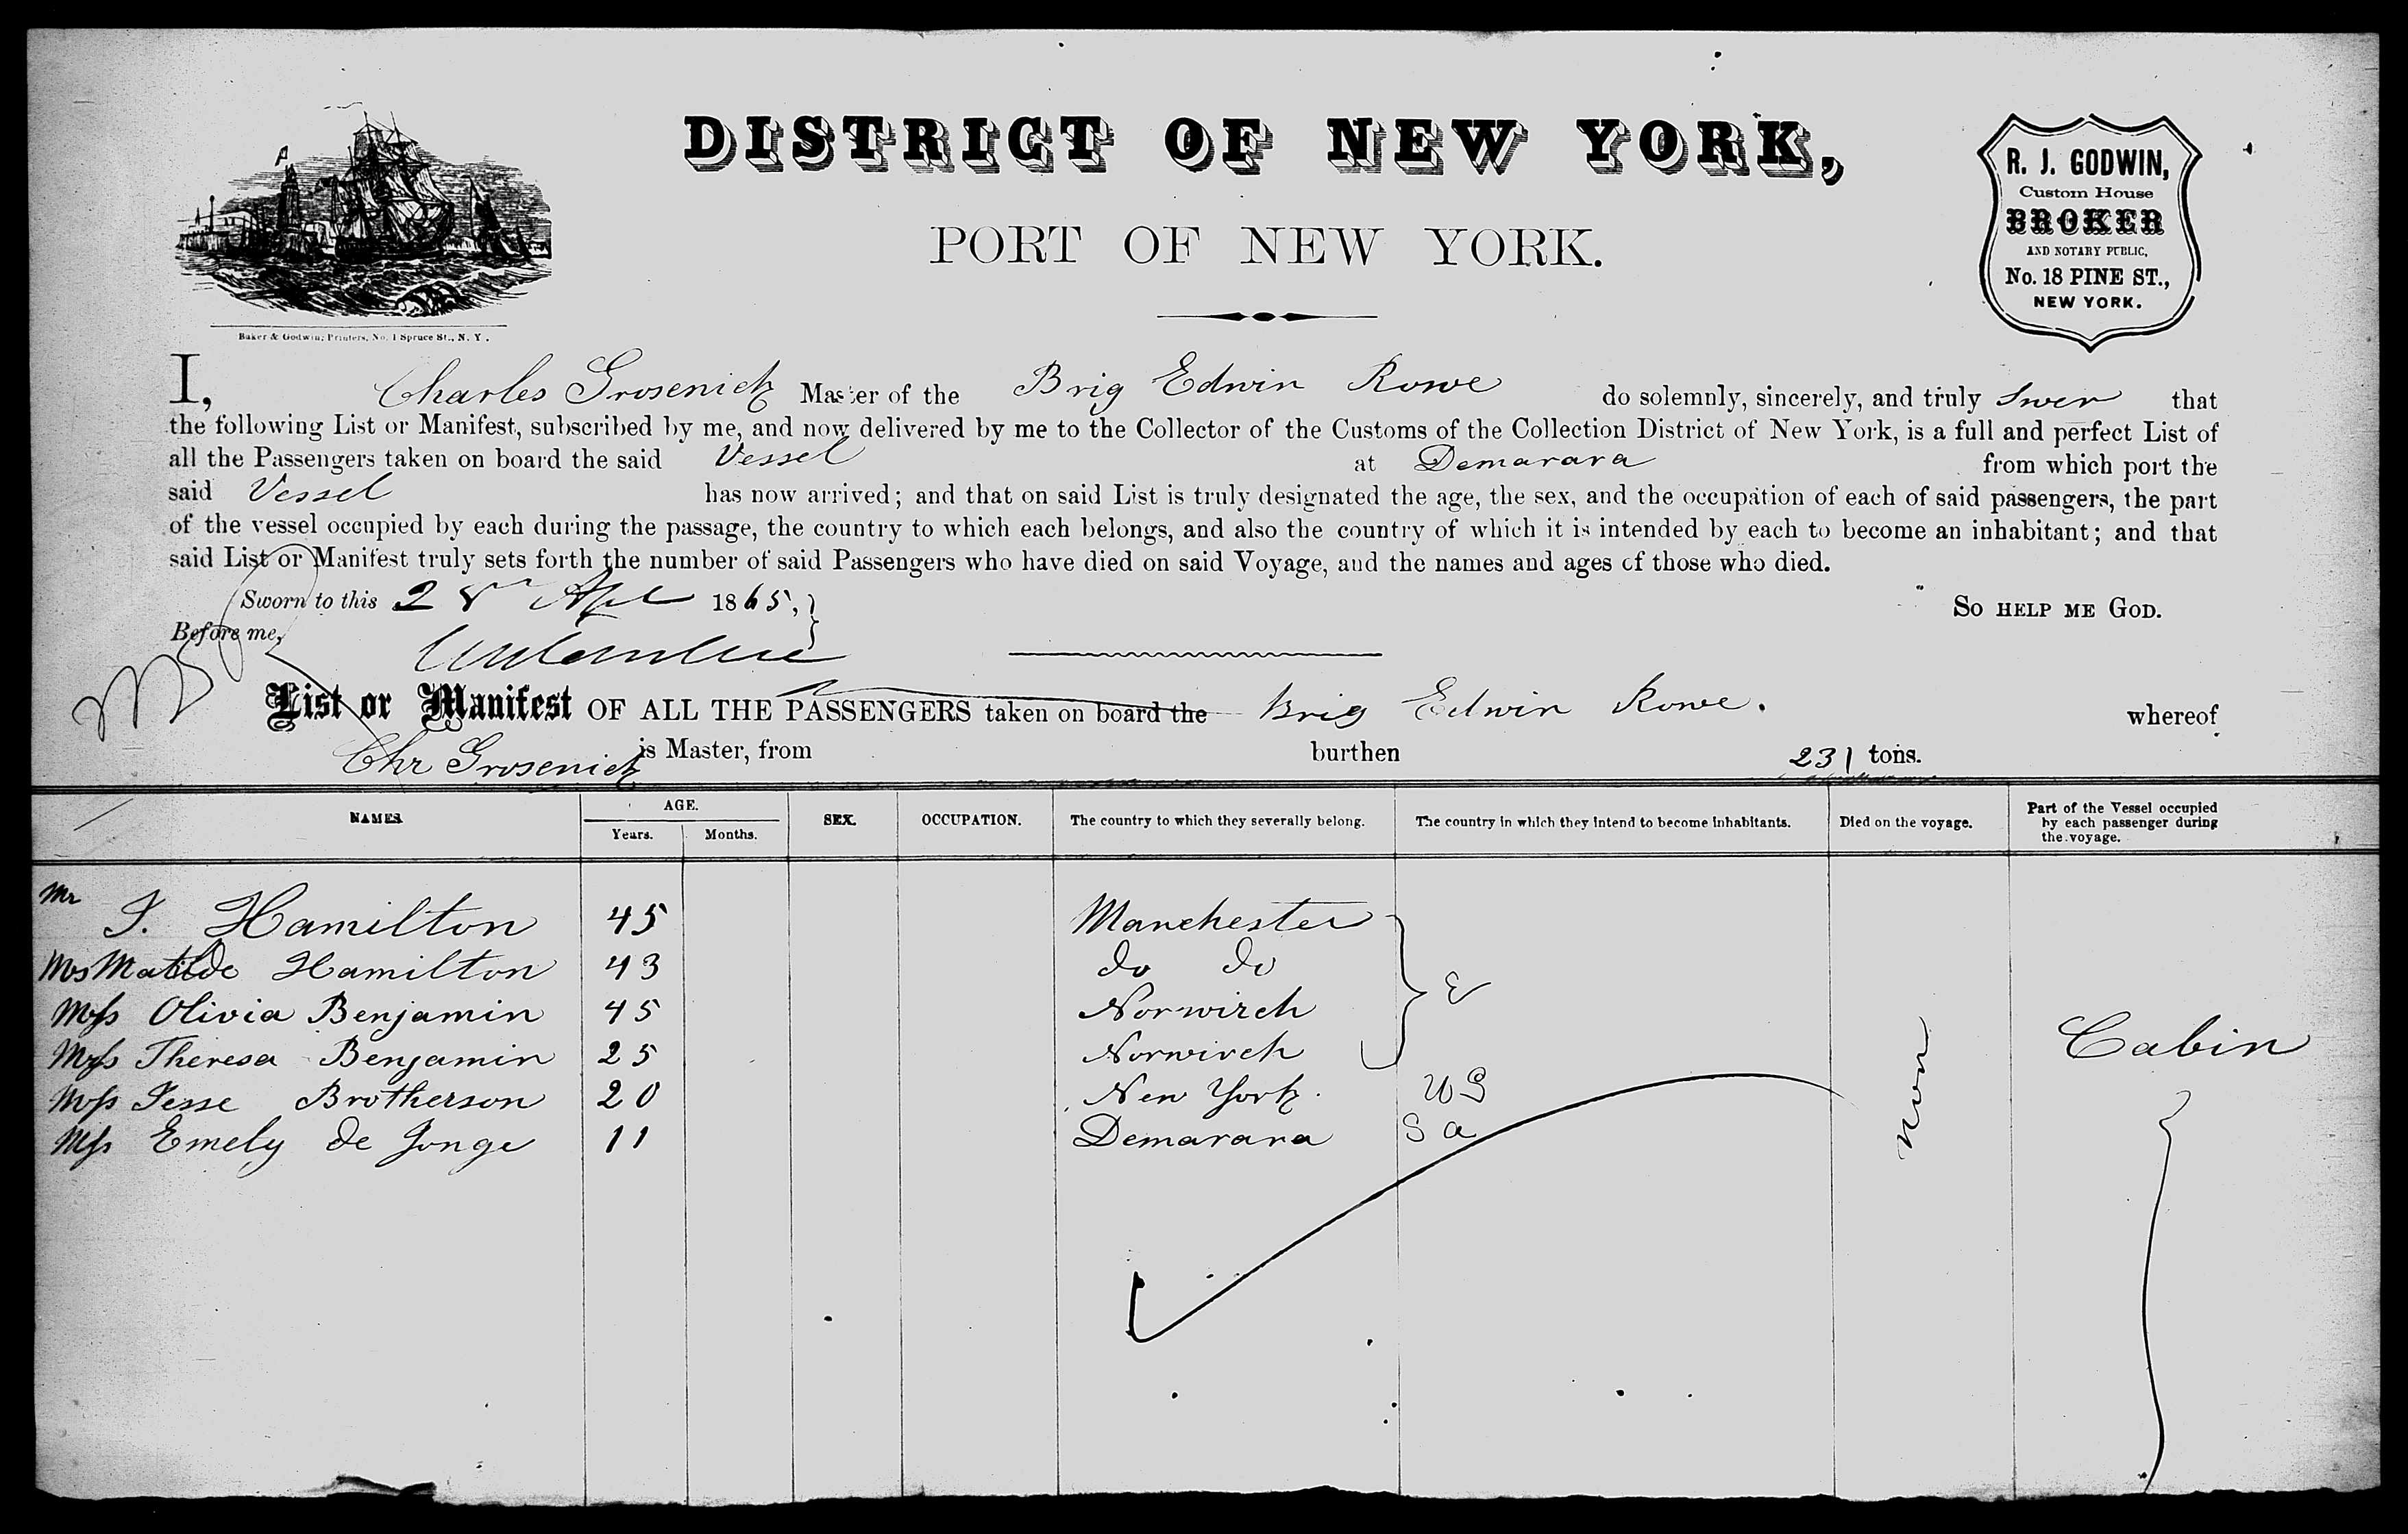 DISTRICT OF NEW YORK,
PORT OF NEW YORK.
R. J. GODWIN,
Custom House
BROKER
AND NOTARY PUBLIC,
No. 18 PINE ST.,
NEW YORK.
Baker & Godwin, Printers, No. 1 Spruce St., N. Y.
I, Charles Grosenick Master of the Brig Edwin Rowe do solemnly, sincerely, and truly Swer that
the following List or Manifest, subscribed by me, and now delivered by me to the Collector of the Customs of the Collection District of New York, is a full and perfect List of
all the Passengers taken on board the said Vessel at Demarara from which port the
said Vessel has now arrived; and that on said List is truly designated the age, the sex, and the occupation of each of said passengers, the part
of the vessel occupied by each during the passage, the country to which each belongs, and also the country of which it is intended by each to become an inhabitant; and that
said List or Manifest truly sets forth the number of said Passengers who have died on said Voyage, and the names and ages of those who died.
Sworn to this 28 Apl 1865, So HELP ME GOD.
Before me,
List or Manifest OF ALL THE PASSENGERS taken on board the Brig Edwin Rowe. whereof
Chr Grosenick is Master, from burthen 231 tons.
NAMES AGE. SEX. OCCUPATION. The country to which they severally belong. The country in which they intend to become inhabitants. Died on the voyage. Part of the Vessel occupied by each passenger during the voyage.
Years. Months.
Mr J. Hamilton 45 Manchester
Mrs Matilde Hamilton 43 do do
Miss Olivia Benjamin 45 Norwirch E
Miss Theresa Benjamin 25 Norwirch Cabin
Miss Jesse Brotherson 20 New York. U S non
Miss Emely de Jonge 11 Demarara S a